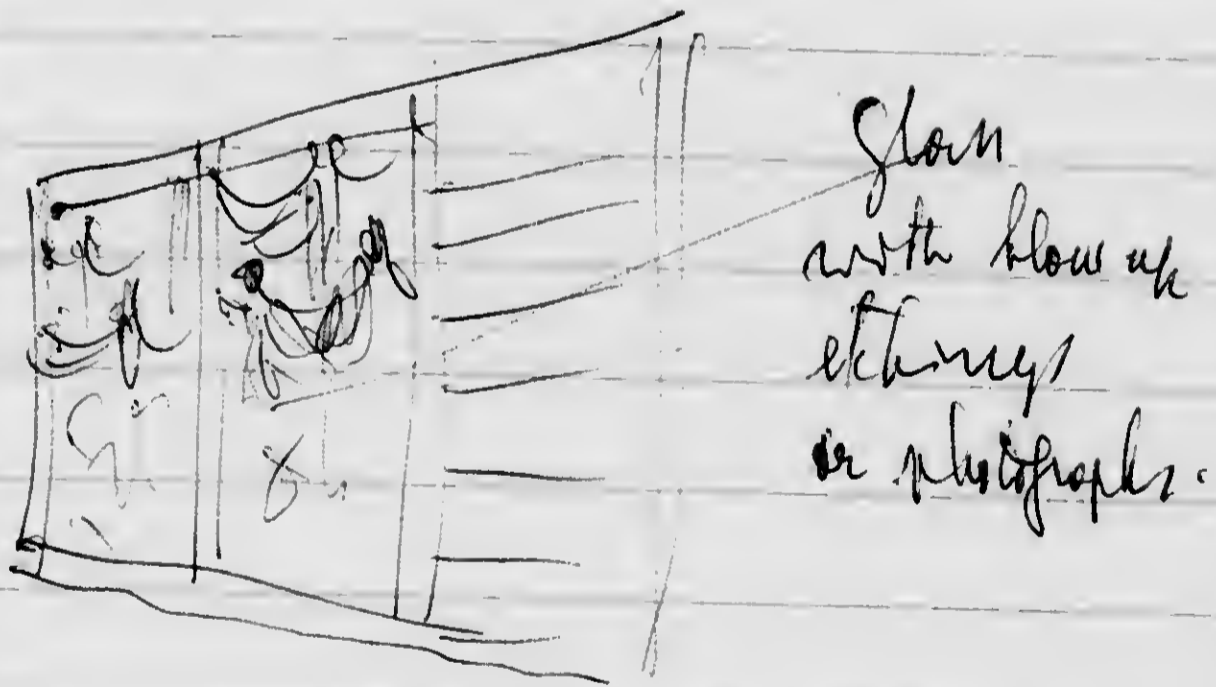 Glass
with blow up
etchings
or photographs.